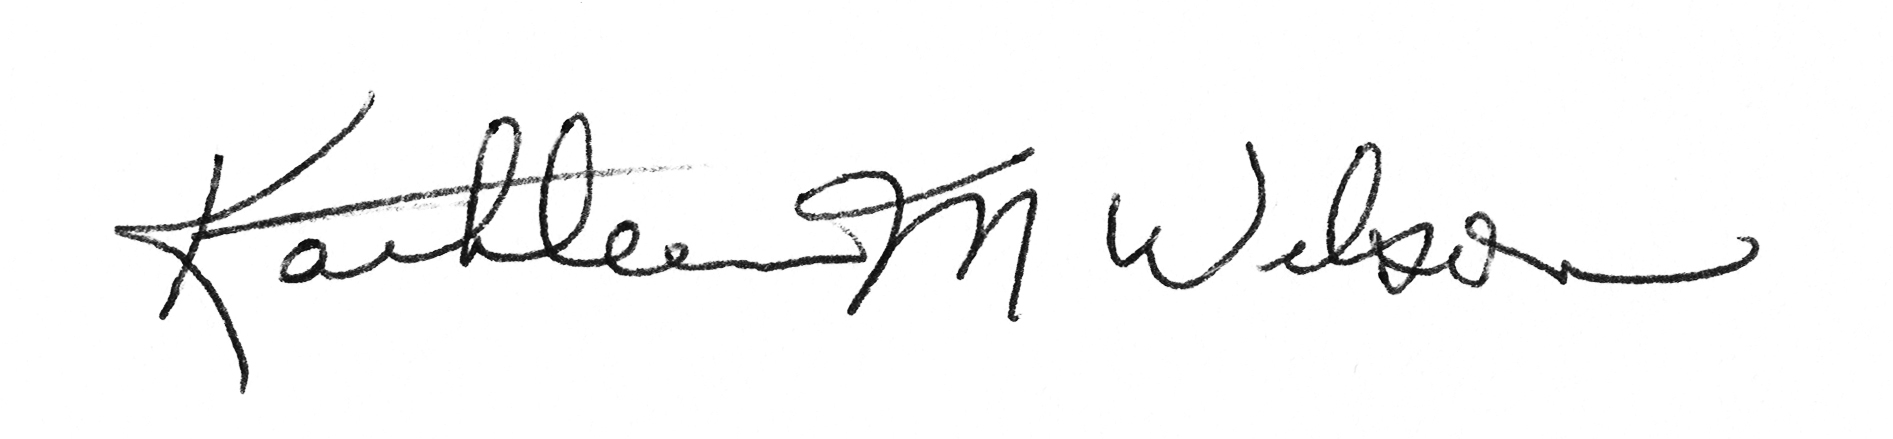 Kathleen M Wilson